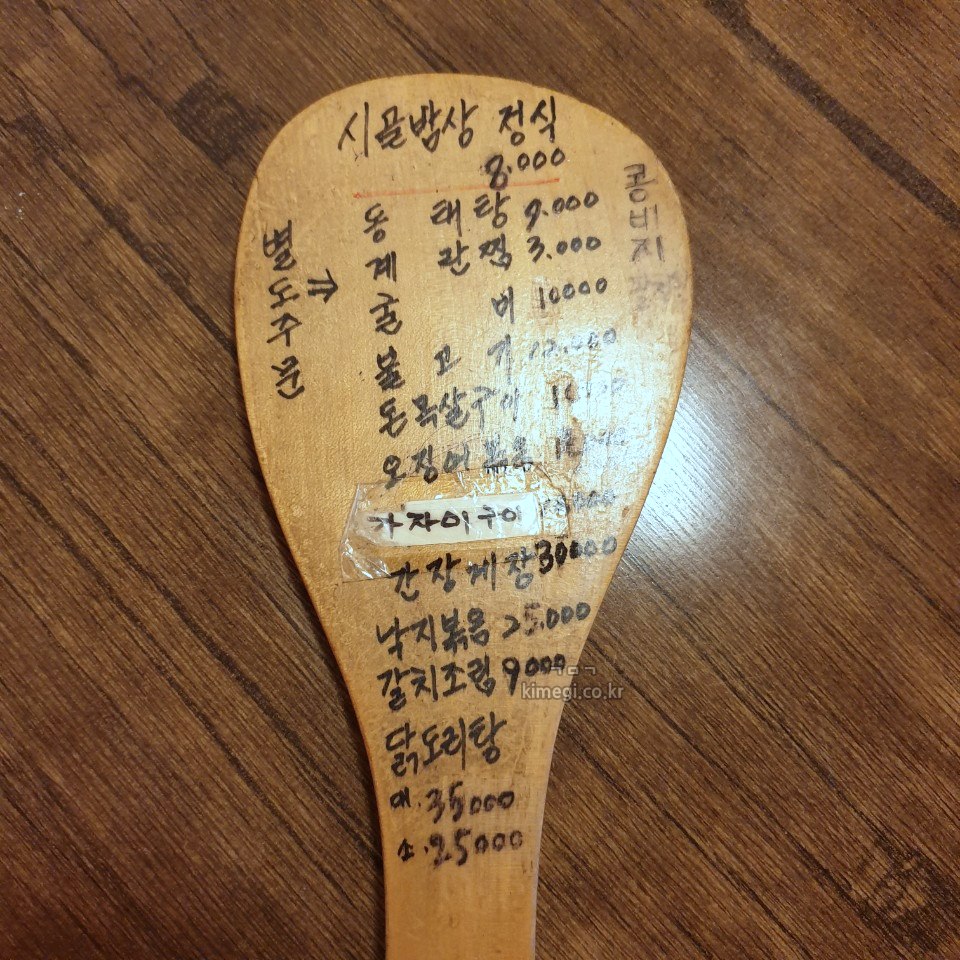 시골밥상 정식
8.000
동 태 탕 9.000
계 란 찜 3.000
굴 비 10000
불 고 기 12.000
돈목살구이
오징어볶음
가자미구이
간장게장 30000
낙지볶음 25.000
갈치조림 9000
닭도리탕
대. 35000
소. 25000
별도주문
⇒
콩비지
kimegi.co.kr